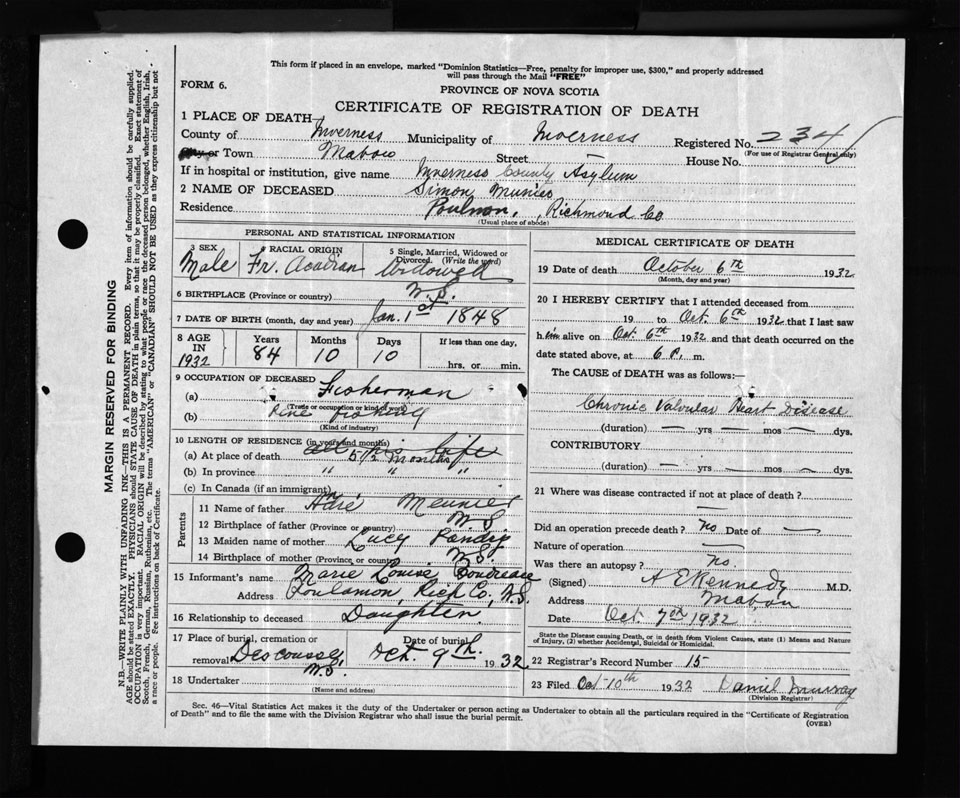 This form if placed in an envelope, marked "Dominion Statistics—Free, penalty for improper use, $300," and properly addressed
will pass through the Mail "FREE"
FORM 6.
PROVINCE OF NOVA SCOTIA
CERTIFICATE OF REGISTRATION OF DEATH
1 PLACE OF DEATH
County of Inverness Municipality of Inverness Registered No. 234
(For use of Registrar General only)
or Town Mabou Street — House No.
If in hospital or institution, give name Inverness County Asylum
2 NAME OF DECEASED Simon
Residence , Richmond Co
(Usual place of abode)
PERSONAL AND STATISTICAL INFORMATION
3 SEX Male
RACIAL ORIGIN Fr. Acadian
5 Single, Married, Widowed or Divorced. (Write the word) Widowed
6 BIRTHPLACE (Province or country) N.S.
7 DATE OF BIRTH (month, day and year) Jan. 1st 1848
8 AGE IN 1932
Years 84
Months 10
Days 10
If less than one day, hrs. or min.
9 OCCUPATION OF DECEASED
(a) Fisherman
(Trade or occupation or kind of work)
(b) fishing
(Kind of industry)
10 LENGTH OF RESIDENCE (in years and months) all his life
(a) At place of death 5 1/2 Months
(b) In province " "
(c) In Canada (if an immigrant)
Parents
11 Name of father Meunier
12 Birthplace of father (Province or country) N.S.
13 Maiden name of mother Lucy
14 Birthplace of mother (Province or country) N.S.
15 Informant's name Marie Louise Boudreau
Address Poulamon, Rich Co, N.S.
16 Relationship to deceased Daughter
17 Place of burial, cremation or removal Descousse, N.S.
Date of burial Oct. 9th. 1932
18 Undertaker
(Name and address)
MEDICAL CERTIFICATE OF DEATH
19 Date of death October 6th 1932
(Month, day and year)
20 I HEREBY CERTIFY that I attended deceased from
19 to Oct. 6th 1932 that I last saw
him alive on Oct. 6th 1932 and that death occurred on the
date stated above, at 6 P. m.
The CAUSE of DEATH was as follows:—
Chronic Valvular Heart Disease
(duration) — yrs — mos — dys.
CONTRIBUTORY
(duration) — yrs. — mos. — dys.
21 Where was disease contracted if not at place of death?
—
Did an operation precede death? No Date of —
Nature of operation —
Was there an autopsy? No.
(Signed) A E Kennedy M.D.
Address Mabou
Date Oct. 7th 1932
State the Disease causing Death, or in death from Violent Causes, state (1) Means and Nature
of Injury, (2) whether Accidental, Suicidal or Homicidal.
22 Registrar's Record Number 15
23 Filed Oct 10th 1932 Daniel Murray
(Division Registrar)
Sec. 46—Vital Statistics Act makes it the duty of the Undertaker or person acting as Undertaker to obtain all the particulars required in the "Certificate of Registration
of Death" and to file the same with the Division Registrar who shall issue the burial permit.
(OVER)
MARGIN RESERVED FOR BINDING
N.B.—WRITE PLAINLY WITH UNFADING INK—THIS IS A PERMANENT RECORD. Every item of information should be carefully supplied.
AGE should be stated EXACTLY. PHYSICIANS should STATE CAUSE OF DEATH in plain terms, so that it may be properly classified. Exact statement of
OCCUPATION is very important. RACIAL ORIGIN will be described by stating to what people or race the deceased person belonged, whether English, Irish,
Scotch, French, German, Russian, Ruthenian, etc. The terms "AMERICAN" or "CANADIAN" SHOULD NOT BE USED as they express citizenship but not
a race or people. See instructions on back of Certificate.